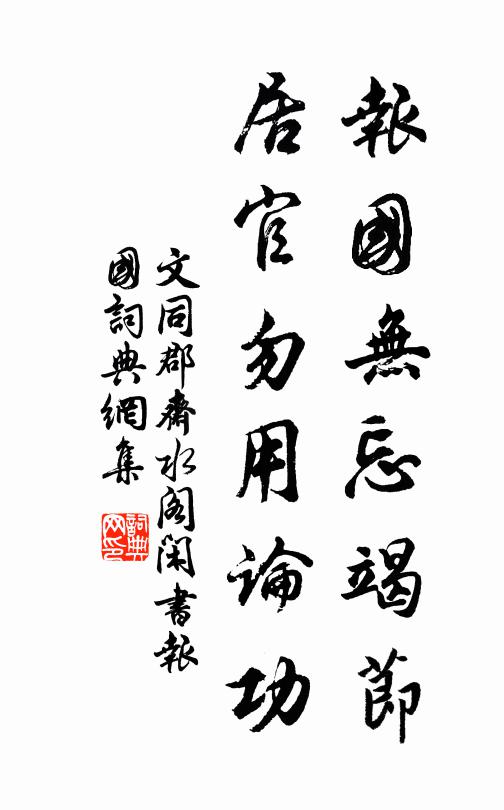 報國無忘竭節
居官勿用論功
文同郡齋水閣閑書報
國詞典網集
詞典网印